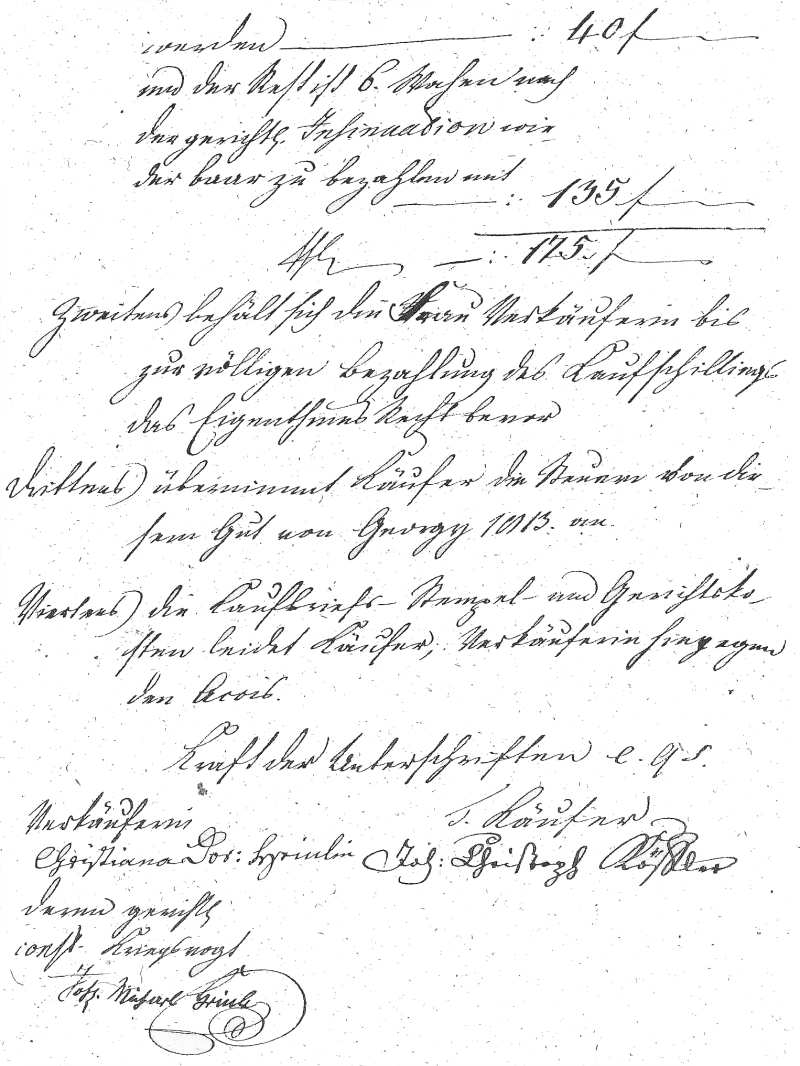 werden — : 40 f
und der Rest ist 6. Wochen nach
der gerichtl. Insinuation wie-
der baar zu bezahlen mit — : 135 f
— : 175. f
Zweitens) behält sich die Frau Verkäuferin bis
zur völligen Bezahlung des Kaufschillings
das Eigenthums Recht bevor
Drittens) übernimmt Käufer die Steuern von die-
sem Gut von Georgy 1813. an.
Viertens) die Kaufbriefs- Stempel- und Gerichtsko-
sten leidet Käufer, Verkäuferin hingegen
den Accis.
Kraft der Unterschriften
Verkäuferin
Käufer
Christiana Dor: Heinlin
Joh: Christoph Kößler
deren gerichtl.
const. Kriegsvogt
Joh. Michael